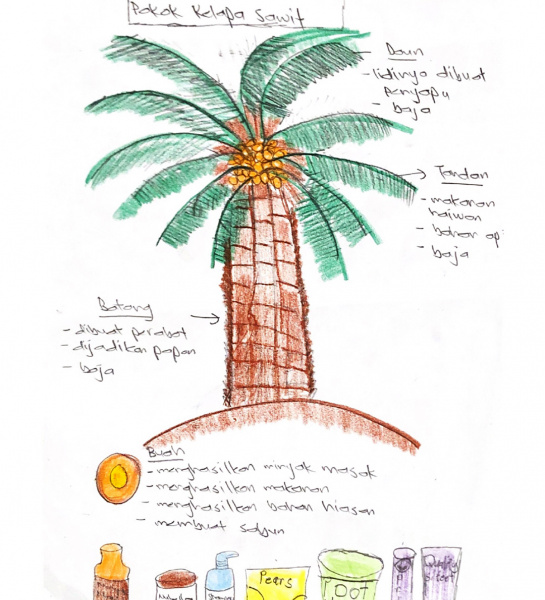 Pokok Kelapa Sawit
Daun
- lidinya dibuat
penyapu
- baja
Tandan
- makanan
haiwan
- bahan api
- baja
Batang
- dibuat perabot
- dijadikan papan
- baja
Buah
- menghasilkan minyak masak
- menghasilkan makanan
- menghasilkan bahan hiasan
- membuat sabun
Pears
DOT
Quality